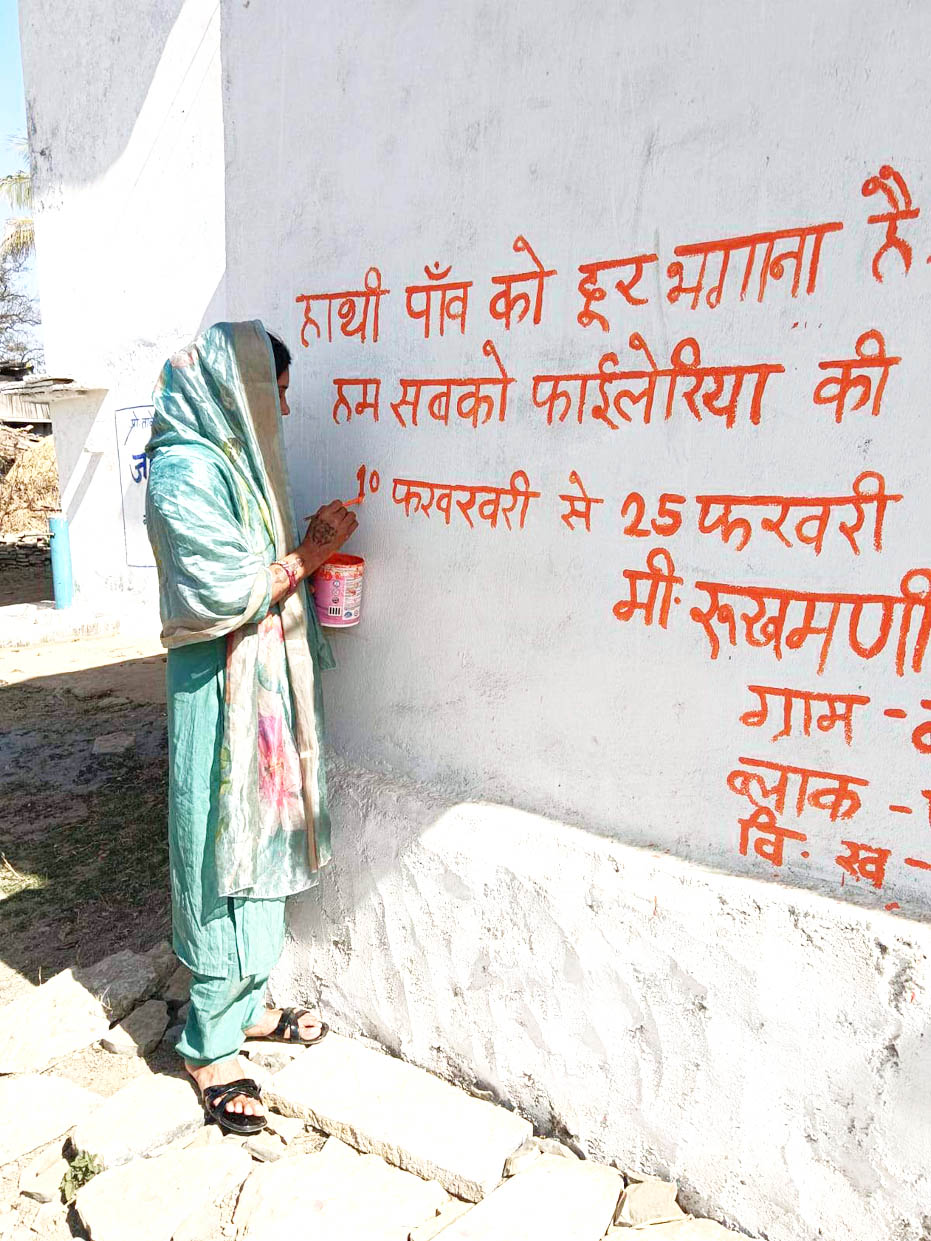 हाथी पाँव को दूर भगाना है
हम सबको फाईलेरिया की
10 फरवरवरी से 25 फरवरी
मी. रूखमणी
ग्राम -
ब्लाक -
वि. ख -